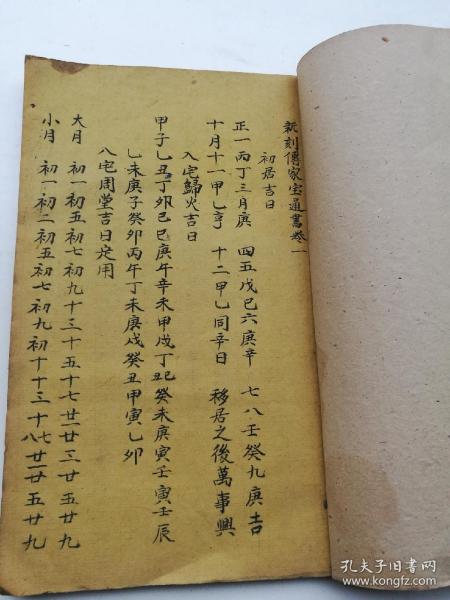 新刻傳家宝通書卷一
初居吉日
正一丙丁三月庚 四五戊己六庚辛 七八壬癸九庚吉
十月十一甲乙亨 十二甲乙同辛日 移居之後萬事興
入宅歸火吉日
甲子乙丑丁卯己巳庚午辛未甲戌丁丑癸未庚寅壬寅壬辰
乙未庚子癸卯丙午丁未庚戌癸丑甲寅乙卯
八宅周堂吉日定用
大月 初一初五初七初九十三十五十七廿一廿三廿五廿九
小月 初一初二初五初七初九初十十三十七十八廿一廿五廿九
孔夫子旧书网
www.kongfz.com